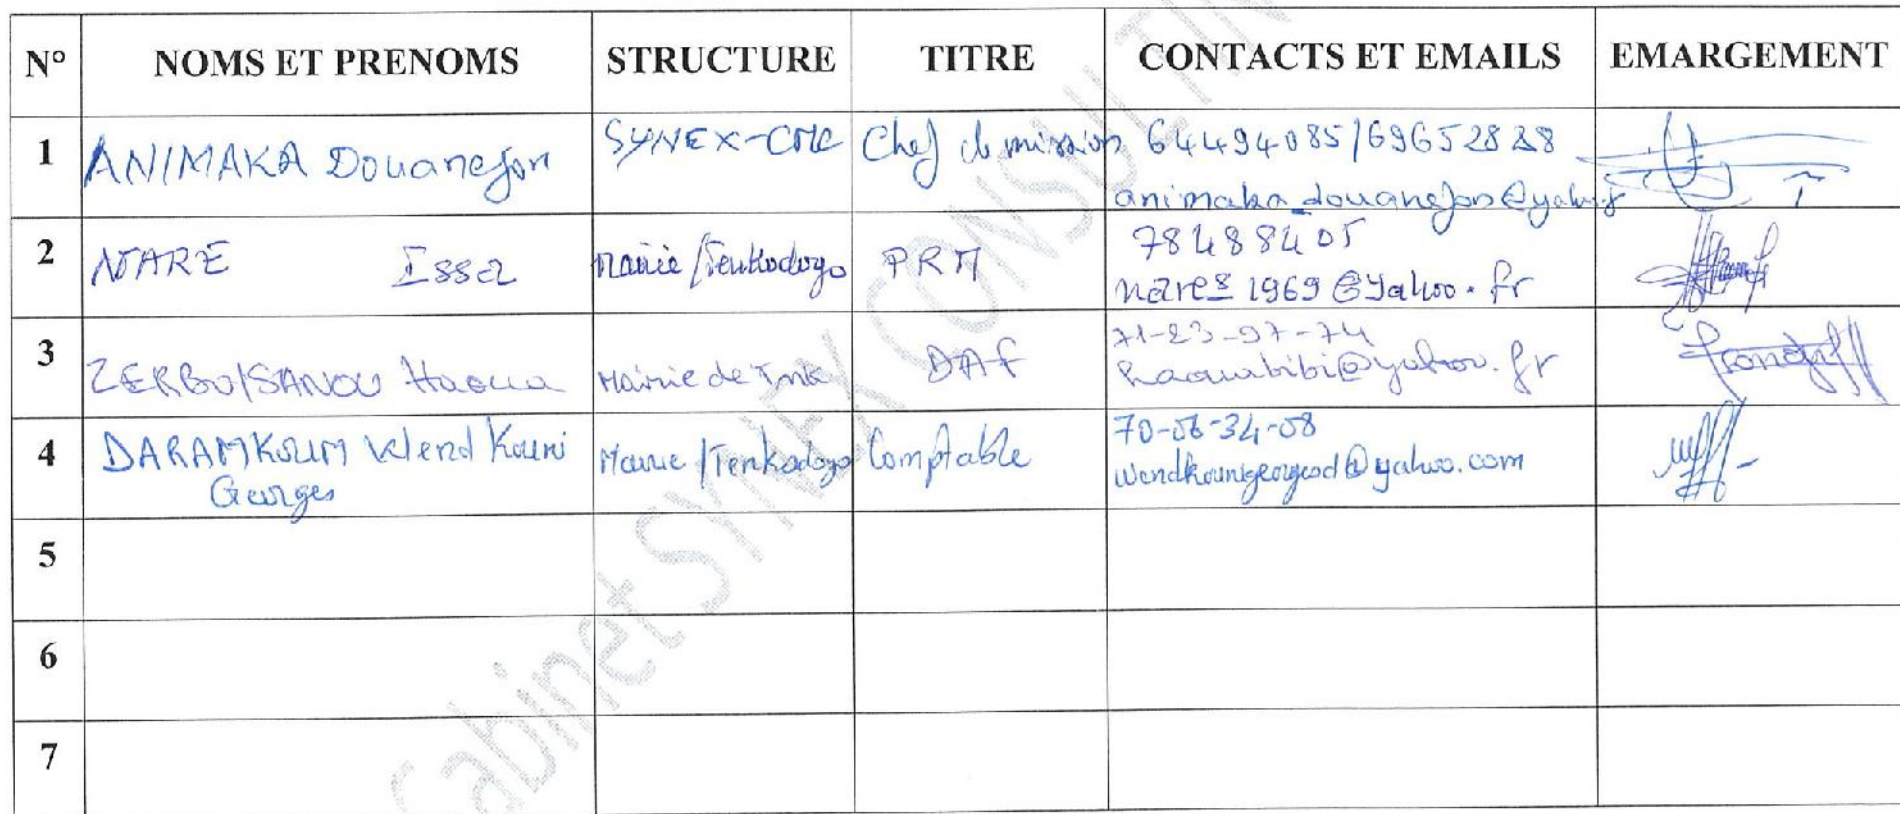 N° NOMS ET PRENOMS STRUCTURE TITRE CONTACTS ET EMAILS EMARGEMENT
1 ANIMAKA Douanejon SYNEX-CMC Chef de mission 64494085/69652828
animaka_douanejon@yahoo.fr
2 NARE Issa Mairie/Tenkodogo PRM 78488405
nares1969@yahoo.fr
3 ZERBO/SANOU Haoua Mairie de Tnk DAF 71-23-97-74
haouabibi@yahoo.fr
4 DARAMKOUM Wend Kouni Mairie/Tenkodogo Comptable 70-06-34-08
Georges wendkounigeorgesd@yahoo.com
5
6
7
Cabinet SYNEX CONSULTING